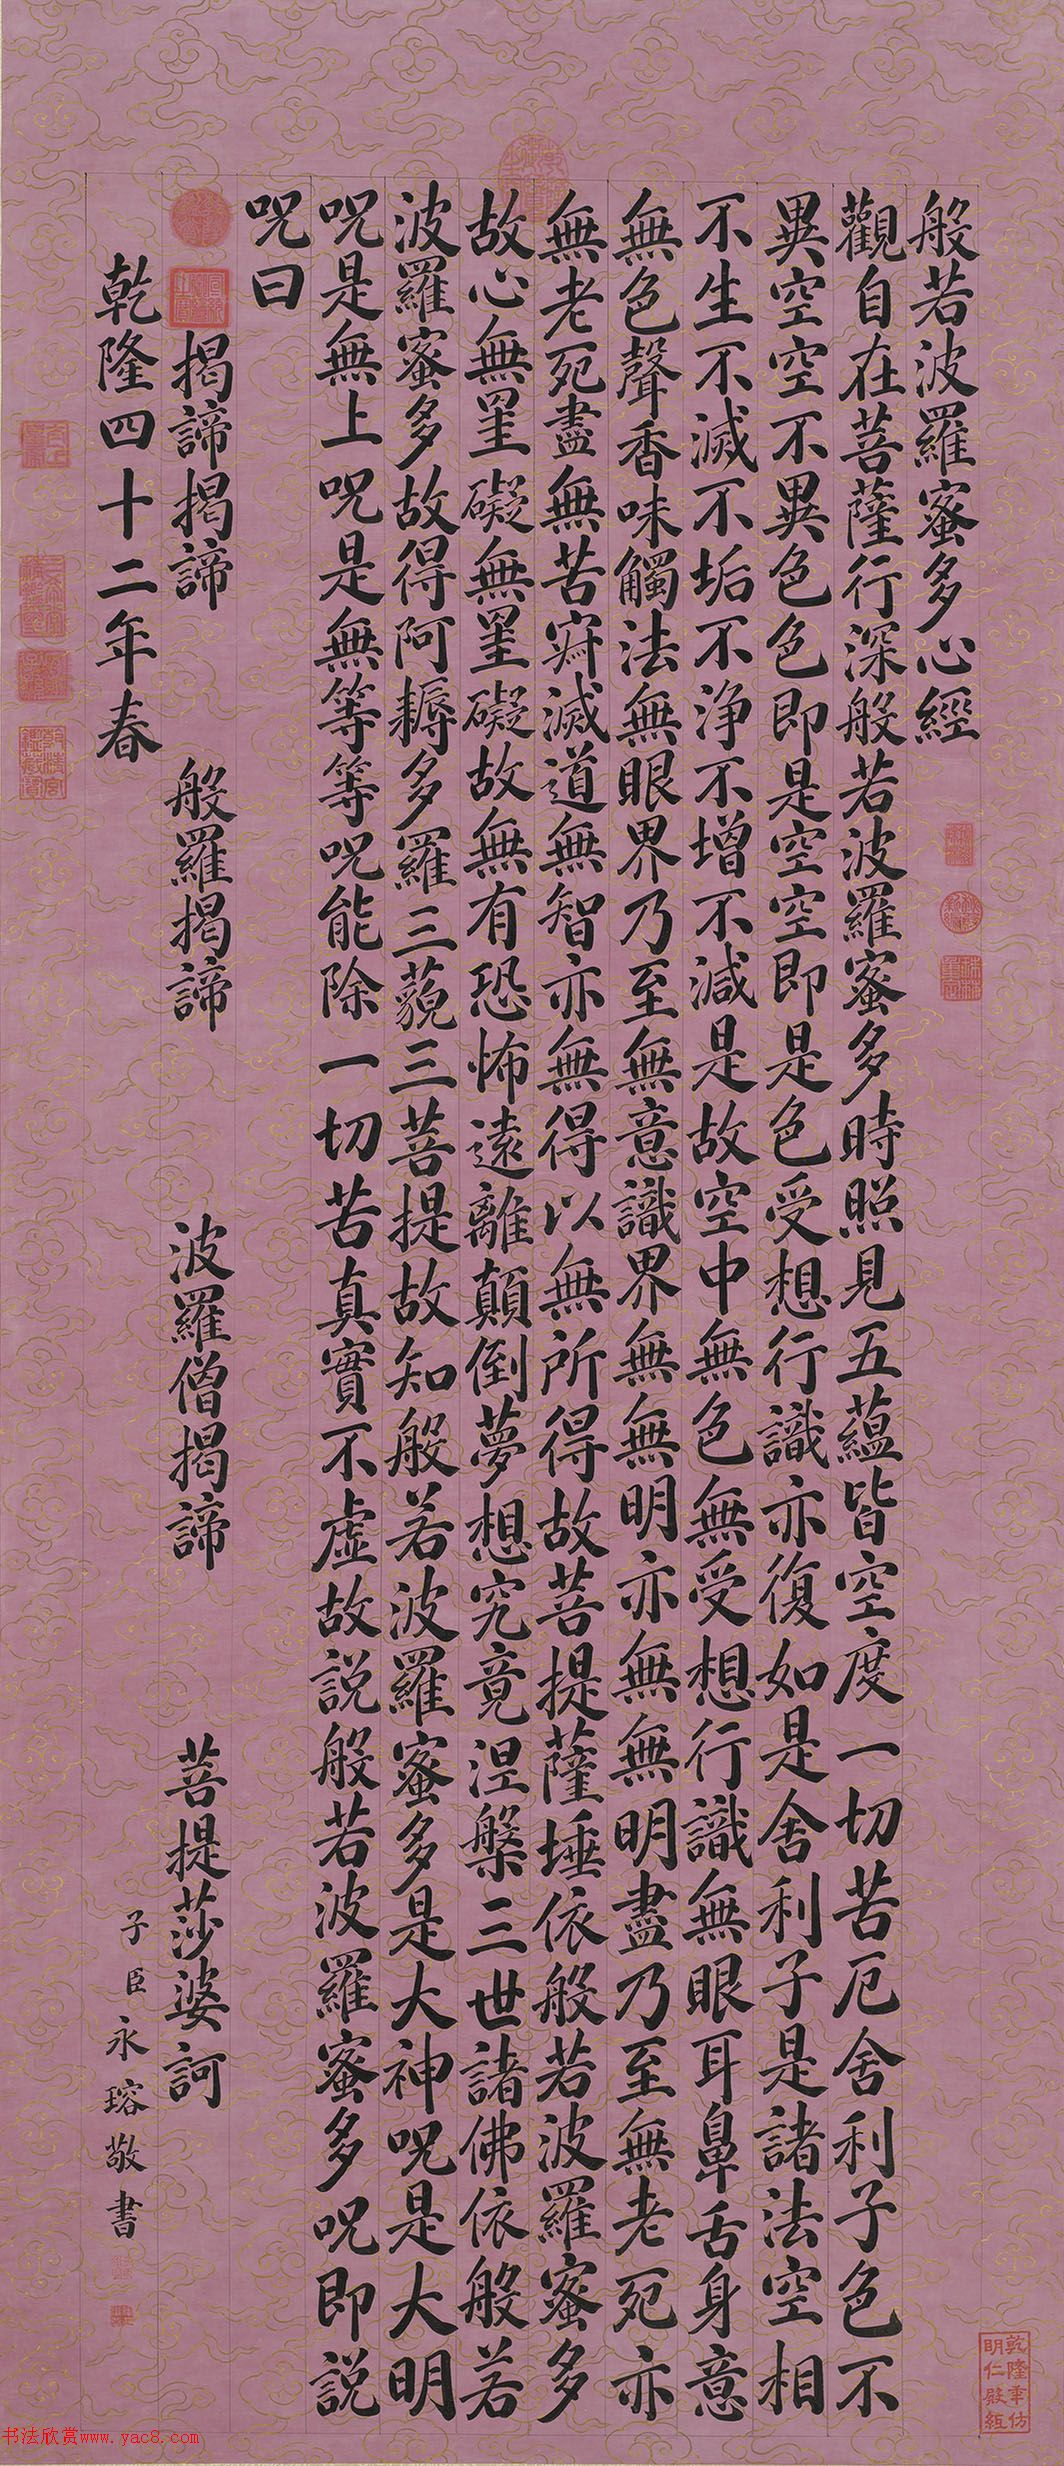 般若波羅蜜多心經
觀自在菩薩行深般若波羅蜜多時照見五蘊皆空度一切苦厄舍利子色不
異空空不異色色即是空空即是色受想行識亦復如是舍利子是諸法空相
不生不滅不垢不浄不增不減是故空中無色無受想行識無眼耳鼻舌身意
無色聲香味觸法無眼界乃至無意識界無無明亦無無明盡乃至無老死亦
無老死盡無苦寂滅道無智亦無得以無所得故菩提薩埵依般若波羅蜜多
故心無罣礙無罣礙故無有恐怖遠離顛倒夢想究竟涅槃三世諸佛依般若
波羅蜜多故得阿耨多羅三藐三菩提故知般若波羅蜜多是大神呪是大明
呪是無上呪是無等等呪能除一切苦真實不虛故説般若波羅蜜多呪即説
呪曰
揭諦揭諦 般羅揭諦 波羅僧揭諦 菩提莎婆訶
乾隆四十二年春
子臣永瑢敬書
乾隆年仿
明仁殿紙
乾清宮
鑑藏寶
书法欣赏www.yac8.com